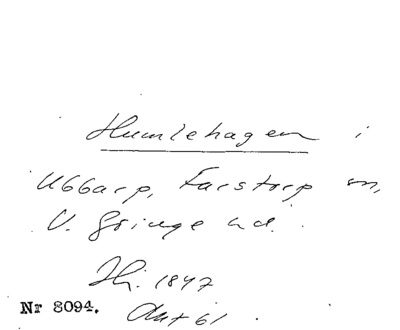 Humlehagen i
Ubbarp, Farstorp sn,
V. Göinge hd.
1847
Nr 8094. Akt 61